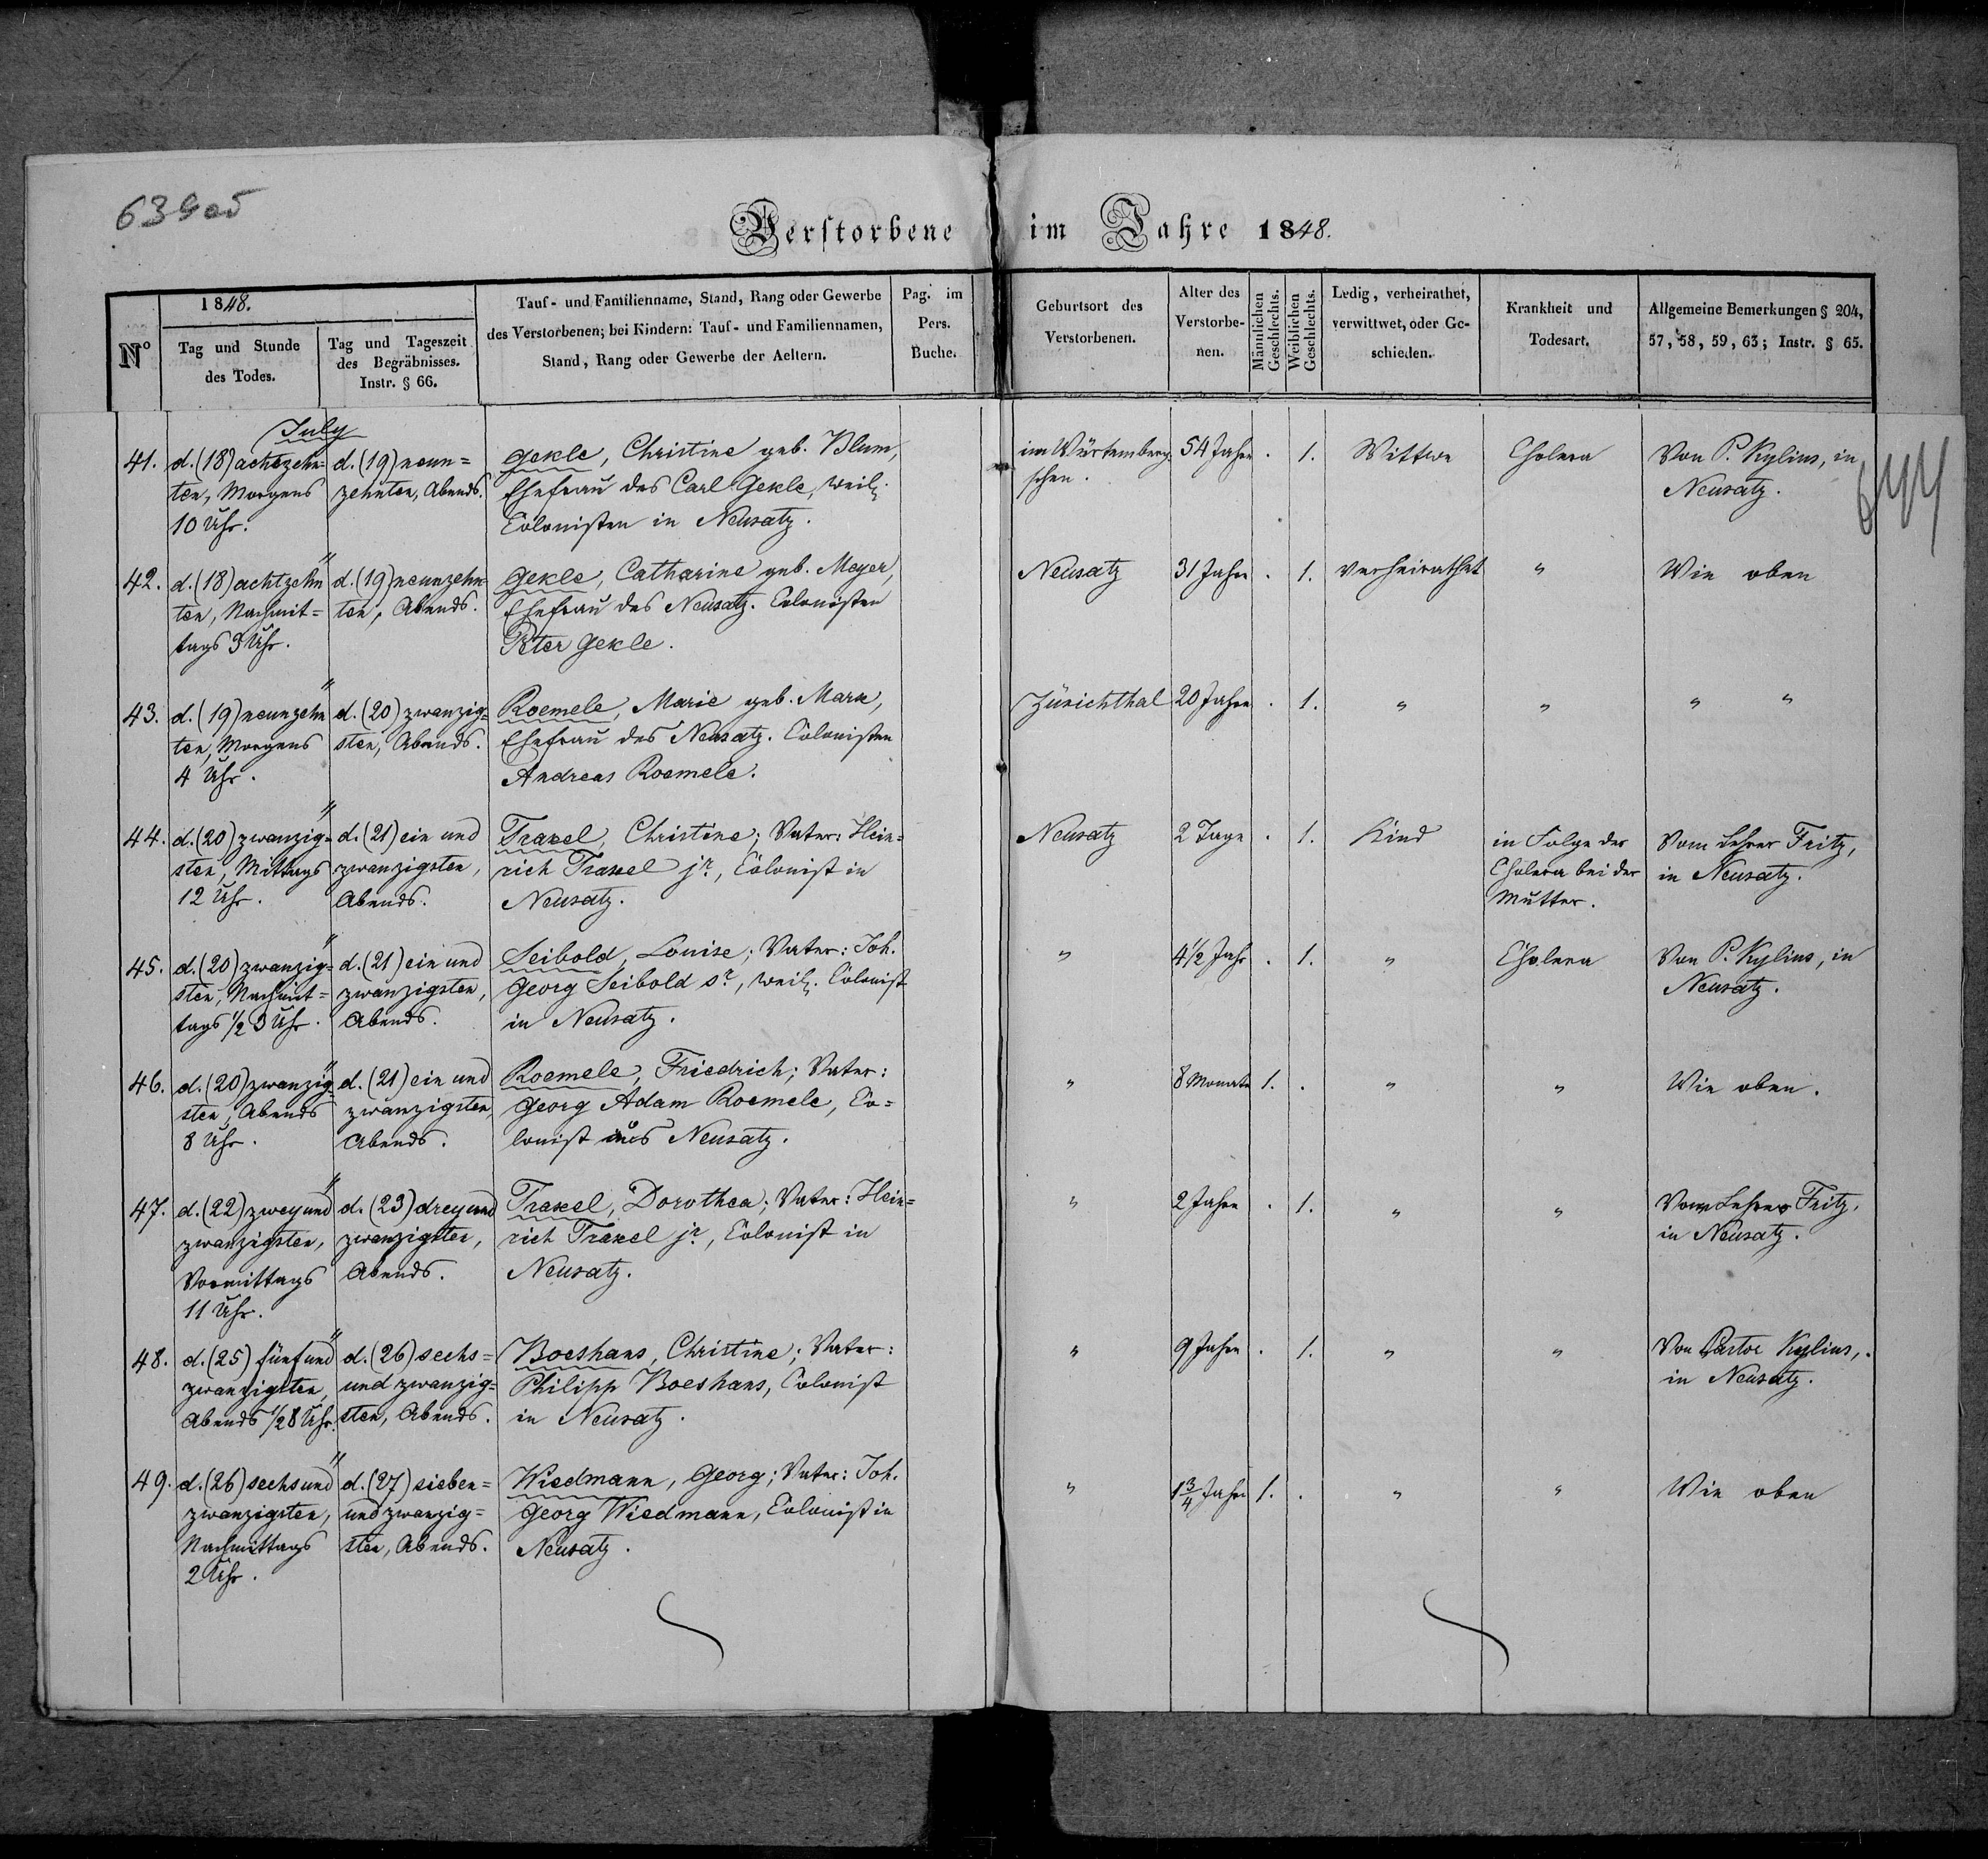 639 об
Verstorbene im Jahre 1848.
N°
1848.
Tag und Stunde
des Todes.
Tag und Tageszeit
des Begräbnisses.
Instr. § 66.
Tauf- und Familienname, Stand, Rang oder Gewerbe
des Verstorbenen; bei Kindern: Tauf- und Familiennamen,
Stand, Rang oder Gewerbe der Aeltern.
Pag. im
Pers.
Buche.
Geburtsort des
Verstorbenen.
Alter des
Verstorbe-
nen.
Männlichen
Geschlechts.
Weiblichen
Geschlechts.
Ledig, verheirathet,
verwittwet, oder Ge-
schieden.
Krankheit und
Todesart.
Allgemeine Bemerkungen § 204,
57, 58, 59, 63; Instr. § 65.
July
41.
d. (18) achtzehn=
ten, Morgens
10 Uhr.
d. (19) neun=
zehnten, Abends.
Gekle, Christine geb. Blum,
Ehefrau des Carl Gekle, weil.
Colonisten in Neusatz.
im Würtemberg.
schen.
54 Jahre
.
1.
Wittwe
Cholera
Von P. Kylius, in
Neusatz.
644
42.
"
d. (18) achtzehn
ten, Nachmit=
tags 3 Uhr.
d. (19) neunzehn=
ten, Abends.
Gekle, Catharine geb. Meyer,
Ehefrau des Neusatz. Colonisten
Peter Gekle.
Neusatz
31 Jahre
.
1.
verheirathet
"
Wie oben
43.
"
d. (19) neunzehn
ten, Morgens
4 Uhr.
d. (20) zwanzig=
sten, Abends.
Roemele, Marie geb. Mark,
Ehefrau des Neusatz. Colonisten
Andreas Roemele.
Zürichthal
20 Jahre
.
1.
"
"
" "
44.
"
d. (20) zwanzig=
sten, Mittags
12 Uhr.
d. (21) ein und
zwanzigsten,
Abends.
Traxel, Christine; Vater: Hein=
rich Traxel jr., Colonist in
Neusatz.
Neusatz
2 Tage
.
1.
Kind
in Folge der
Cholera bei der
Mutter.
Vom Lehrer Fritz,
in Neusatz.
45.
"
d. (20) zwanzig=
sten, Nachmit=
tags 1/2 3 Uhr.
d. (21) ein und
zwanzigsten,
Abends.
Seibold, Louise; Vater: Joh.
Georg Seibold sr., weil. Colonist
in Neusatz.
"
4 1/2 Jahr
.
1.
"
Cholera
Von P. Kylius, in
Neusatz.
46.
"
d. (20) zwanzig=
sten, Abends
8 Uhr.
d. (21) ein und
zwanzigsten,
Abends.
Roemele, Friedrich; Vater:
Georg Adam Roemele, Co=
lonist aus Neusatz.
"
8 Monate
1.
.
"
"
Wie oben.
47.
"
d. (22) zwey und
zwanzigsten,
Vormittags
11 Uhr.
d. (23) drey und
zwanzigsten,
Abends.
Traxel, Dorothea; Vater: Hein=
rich Traxel jr., Colonist in
Neusatz.
"
2 Jahre
.
1.
"
"
Vom Lehrer Fritz,
in Neusatz.
48.
"
d. (25) fünf und
zwanzigsten,
Abends 1/2 8 Uhr.
d. (26) sechs=
und zwanzig=
sten, Abends.
Boeshans, Christine; Vater:
Philipp Boeshans, Colonist
in Neusatz.
"
9 Jahre
.
1.
"
"
Von Pastor Kylius,
in Neusatz.
49.
"
d. (26) sechs und
zwanzigsten,
Nachmittags
2 Uhr.
d. (27) sieben=
und zwanzig=
sten, Abends.
Wiedmann, Georg; Vater: Joh.
Georg Wiedmann, Colonist in
Neusatz.
"
1 3/4 Jahre
1.
.
"
"
Wie oben